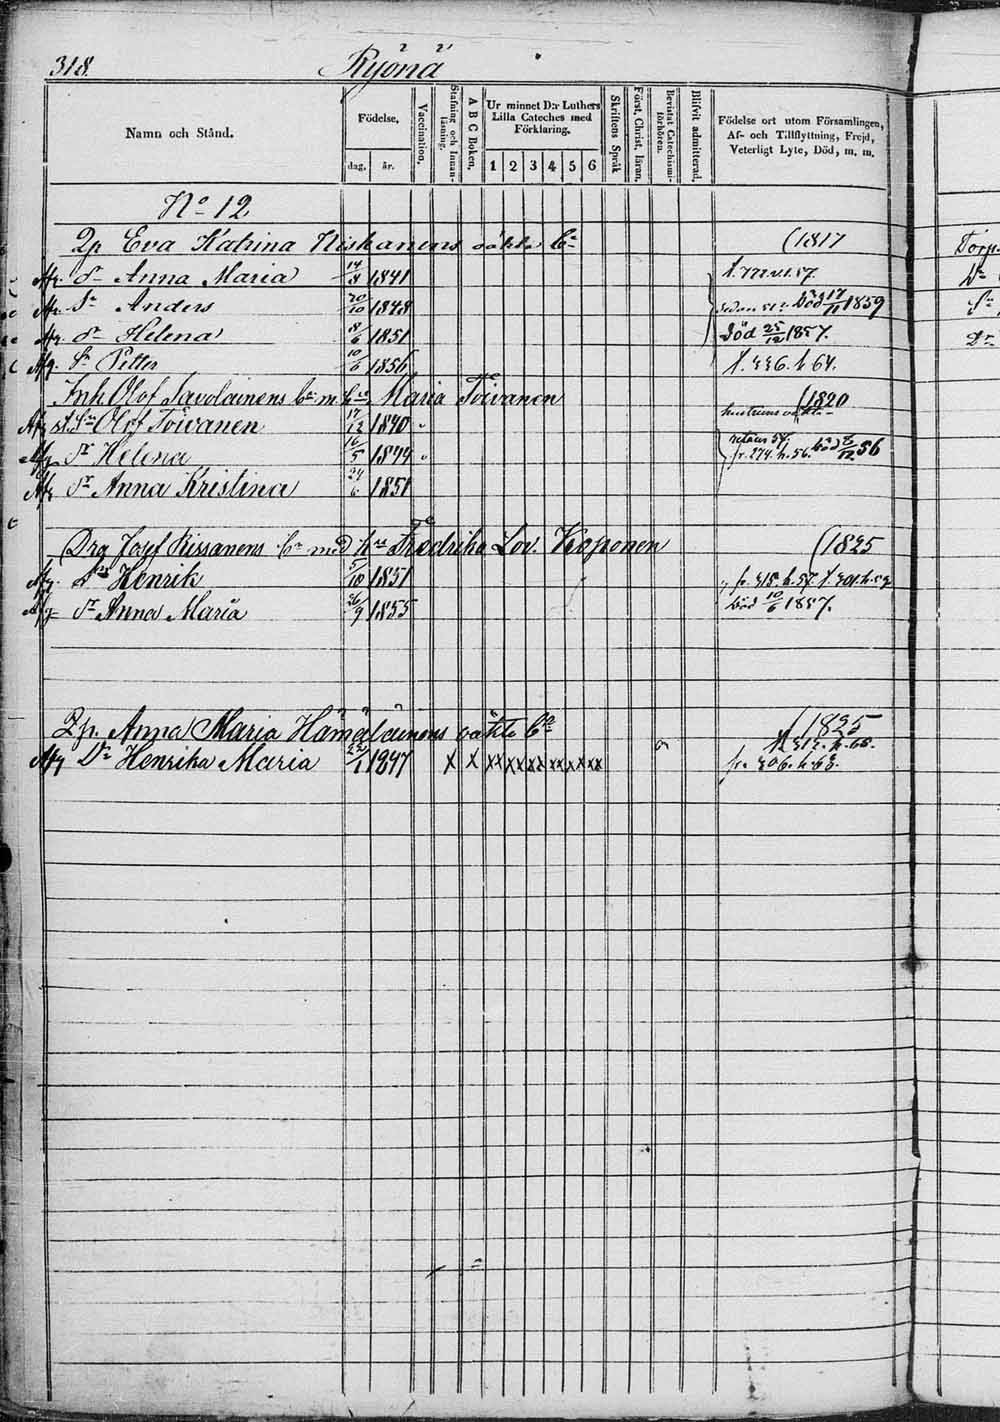 318.
Ryönä
Namn och Stånd.
Födelse,
dag.
år.
Vaccination.
Stafning och Innanläsning.
A B C Boken.
Ur minnet D:r Luthers Lilla Cateches med Förklaring.
1 2 3 4 5 6
Skriftens Språk
Först. Christ. läran.
Bevistat Catechismiförhören.
Blifvit admitterad.
Födelse ort utom Församlingen, Af- och Tillflyttning, Frejd, Veterligt Lyte, Död, m. m.
No 12
Eva Katrina Niskanens oäkta bn (1817
dr Anna Maria 14/8 1841
Sn Anders 20/10 1848 Död 17/11 1859
dr Helena 8/6 1851 Död 25/12 1857.
Sn Petter 10/6 1856 h. 64.
Inh. Olof Savolainens bn m. hu Maria Toivanen (1820
st. Sn Olof Toivanen 17/12 1840 hustruns oäkta
dr Helena 16/5 1844 fr. 274. h. 56. död 8/12 56
dr Anna Kristina 24/6 1851
Drg Josef Rissanens bn med hu Fredrika Lov. Koponen (1825
Sn Henrik 5/10 1851
dr Anna Maria 26/9 1855 död 10/6 1857.
Anna Maria Hämäläinens oäkta bn (1825
Dr Henrika Maria 22/1 1847 x x xx xx xx xx xx xx
Torp.